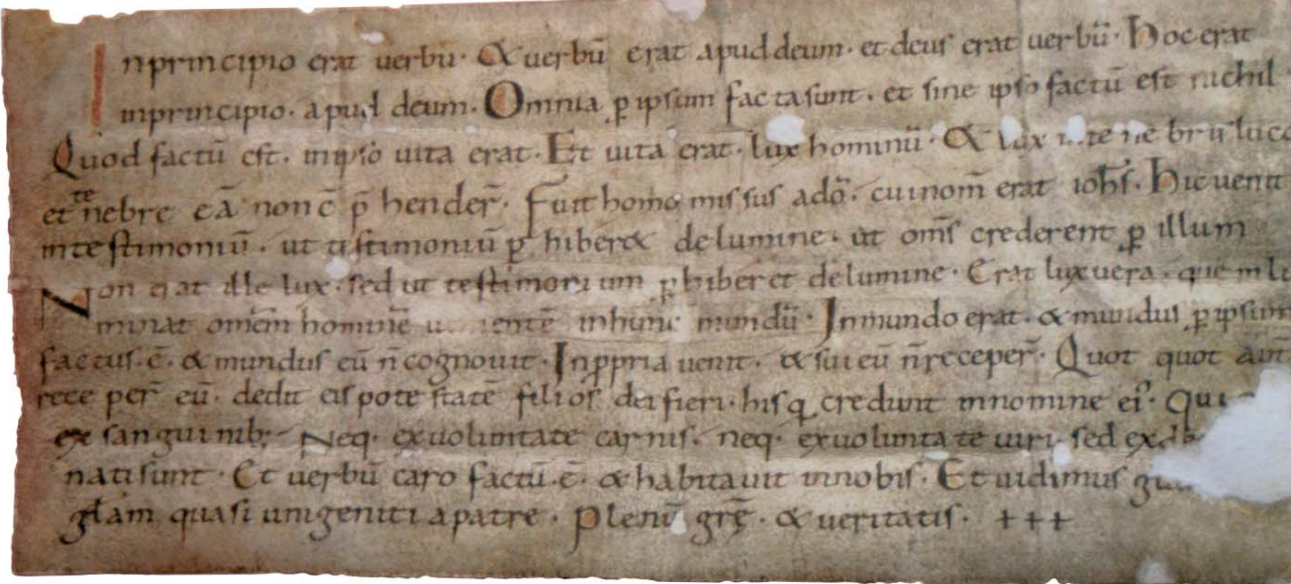 Inprincipio erat uerbū· & uerbū erat apud deum· et deus erat uerbū· Hoc erat
inprincipio· apud deum· Omnia ꝑ ipsum facta sunt· et sine ipso factū est nichil
Quod factū est· inipso uita erat· Et uita erat· lux hominū· & lux
et tenebre eā non c̄ p̄hender̄· Fuit homo missus adō· cui nom̄ erat ioh̄s· Hic uenit
in testimoniū· ut testimoniū ꝑhiber& de lumine· ut om̄s crederent ꝑ illum
Non erat ille lux· sed ut testimonium ꝑhiberet de lumine· Erat lux uera· quem lu
minat om̄em hominē uenientē inhunc mundū· Inmundo erat· & mundus ꝑ ipsum
factus· ē· & mundus eū n̄ cognouit· Inꝓpria uenit· & sui eū n̄ receper̄· Quot quot aut̄
receper̄ eū· dedit eis potestatē filios dei fieri· his q̄ credunt innomine ei᾿· Qui
ex sanguinib; Neq· ex uoluntate carnis· neq· ex uoluntate uiri· sed ex
nati sunt· Et uerbū caro factū· ē· & habitauit innobis· Et uidimus
gl̄am quasi unigeniti a patre· Plenū grę̄· & ueritatis· +++